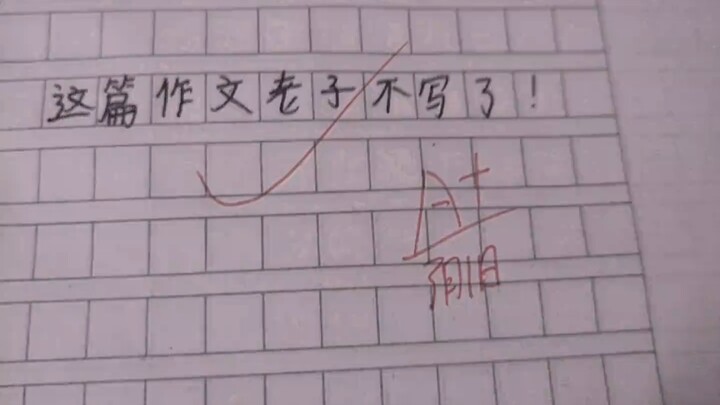 这篇作文老子不写了！
A+